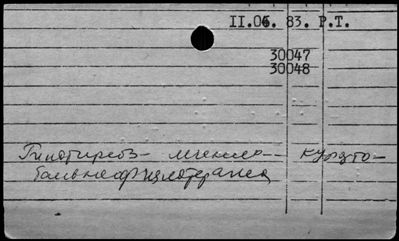 II.06. 83. P.T.
30047
30048
Гипотиреоз – лечение – курорто–
бальнеофизиотерапия